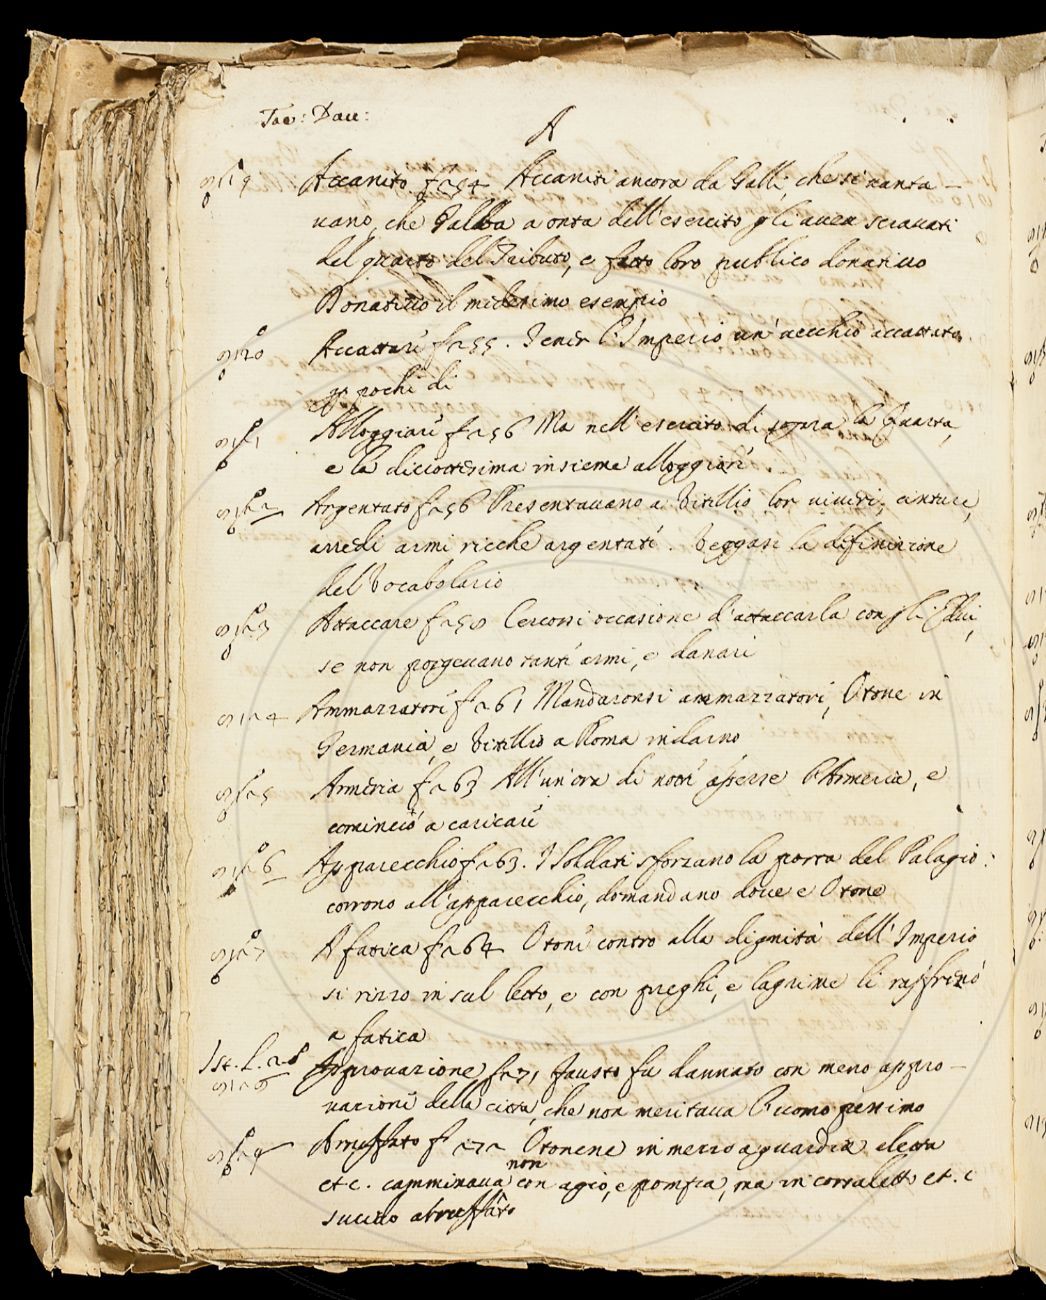 Tac: Dau:
A
Accanito f 254 Accaniti ancora da Galli, che si vanta-
vano, che Galba a onta dell'esercito gli avea scravati
del quarto del Tributo, e fatto loro publico donativo
Donativo il midesimo esempio
Accattare f 255. Tener l'Imperio un'vecchio accattato
pochi dì
Alloggiare f 256 Ma nell'esercito di sopra la Quarta,
e la diciottesima insieme alloggiate
Argentato f 256 Presentavano a Vitellio lor viveri, cinture,
arredi armi ricche argentate. Veggasi la difinizione
del Vocabolario
Attaccare f 258 Cercossi occasione d'attaccarla con gli Edui,
se non porgevano tanti armi, e danari
Ammazzatore f 261 Mandaronsi ammazzatori, Otone in
Germania, e Vitellio a Roma indarno
Armeria f 263 All'un'ora di notte aperse l'Armeria, e
cominciò a caricare
Apparecchio f 263. I Soldati sforzano la porta del Palagio:
corrono all'apparecchio, domandano dove e Otone
A fatica f 264 Otone contro alla dignità dell'Imperio
si rizzo in sul letto, e con preghi, e lagrime li raffrenò
a fatica
Ist. L. 2
Approvazione f 271 Fausto fù dannato con meno appro-
vazione della città, che non meritava l'uomo pessimo
Arruffato f 272 Otone in mezzo a guardia eletta
etc. camminava non con agio, e pompa, ma in corsaletto et. c
sucido abruffato